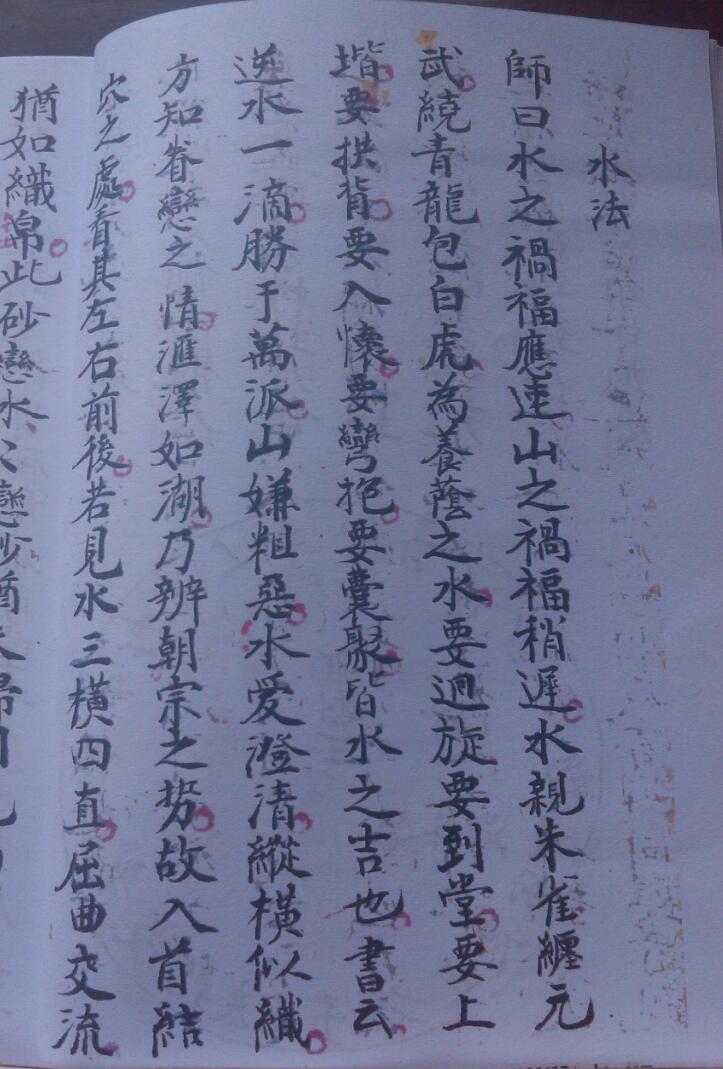 水法
師曰水之禍福應速山之禍福稍遲水親朱雀纏元
武繞青龍包白虎為養蔭之水要迴旋要到堂要上
堦要拱背要入懷要彎抱要囊聚皆水之吉也書云
逆水一滴勝于萬派山嫌粗惡水愛澄清縱橫似織
方知眷戀之情滙澤如湖乃辨朝宗之势故入首結
穴之處看其左右前後若見水三橫四直屈曲交流
猶如織帛此砂戀水〻戀砂酋